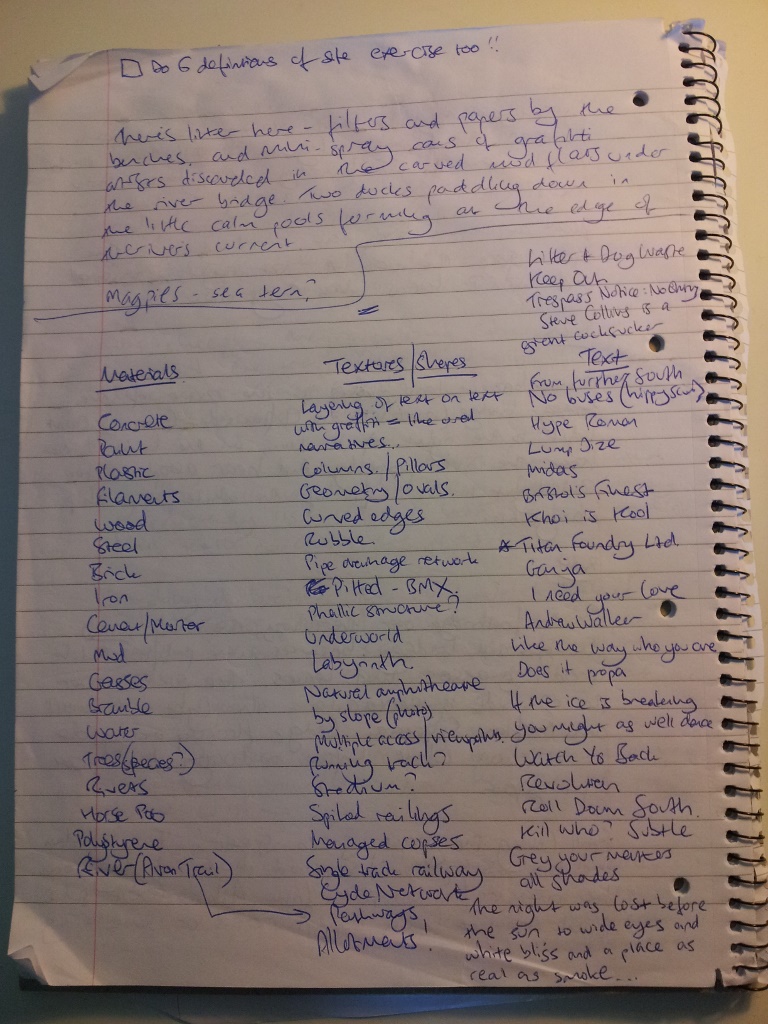 □ Do 6 definitions of site exercise too!!
There's litter here - filters and papers by the
benches, and mini-spray cans of graffiti
artists discarded in the carved mud flats under
the river bridge. Two ducks paddling down in
the little calm pools forming at the edge of
the rivers current
Magpies - sea tern?
Materials
Concrete
Paint
Plastic
Filaments
Wood
Steel
Brick
Iron
Cement/Mortar
Mud
Grasses
Bramble
Water
Trees (species?)
Rivets
Horse Poo
Polystyrene
River (Avon Trail)
Textures/Shapes
Layering of text on text
with graffiti = like oral
narratives...
Columns / Pillars
Geometry / ovals.
Curved edges
Rubble.
Pipe drainage network
Pitted - BMX.
Phallic structure?
Underworld
Labyrinth.
Natural amphitheatre
by slope (photo)
Multiple access/viewpoints.
Running track?
Stadium?
Spiked railings
Managed copses
Single track railway
Cycle Network
Pathways
Allotments!
Litter + Dog Waste
Keep Out
Trespass Notice: Nothing
Steve Collins is a
giant cocksucker
Text
From further South
No buses (hippy scum)
Hype Roman
Lump Size
Midas
Bristol's Finest
Khoi is Kool
Titan Foundry Ltd.
Ganja
I need your love
Andrew Walker
Like the way who you are
Does it propa
If the ice is breaking
you might as well dance
Watch Yo Back
Revolution
Roll Down South.
Kill who? Subtle
Grey your
all shades
The night was lost before
the sun to wide eyes and
white bliss and a place as
real as smoke...